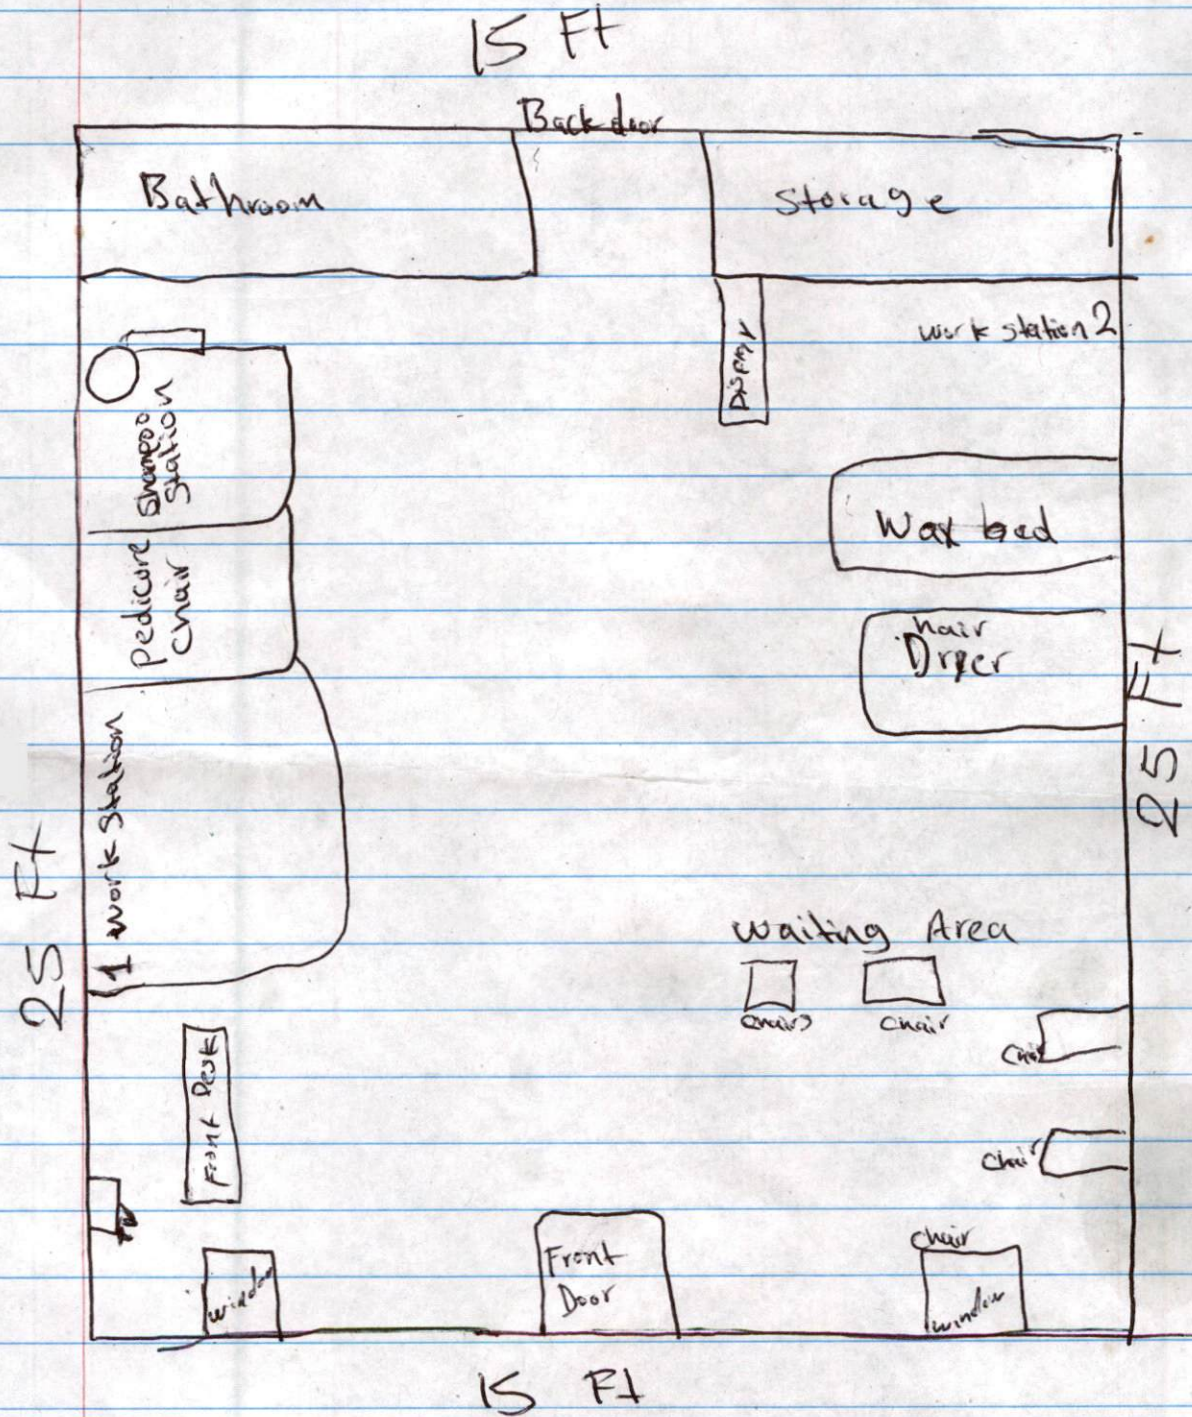 15 Ft
Back door
Bathroom
Storage
work station 2
Display
Shampoo
Station
Wax bed
Pedicure
Chair
hair
Dryer
25 Ft
1 work Station
25 Ft
waiting Area
chairs
chair
chair
Front Desk
chair
chair
Front
Door
window
window
15 Ft